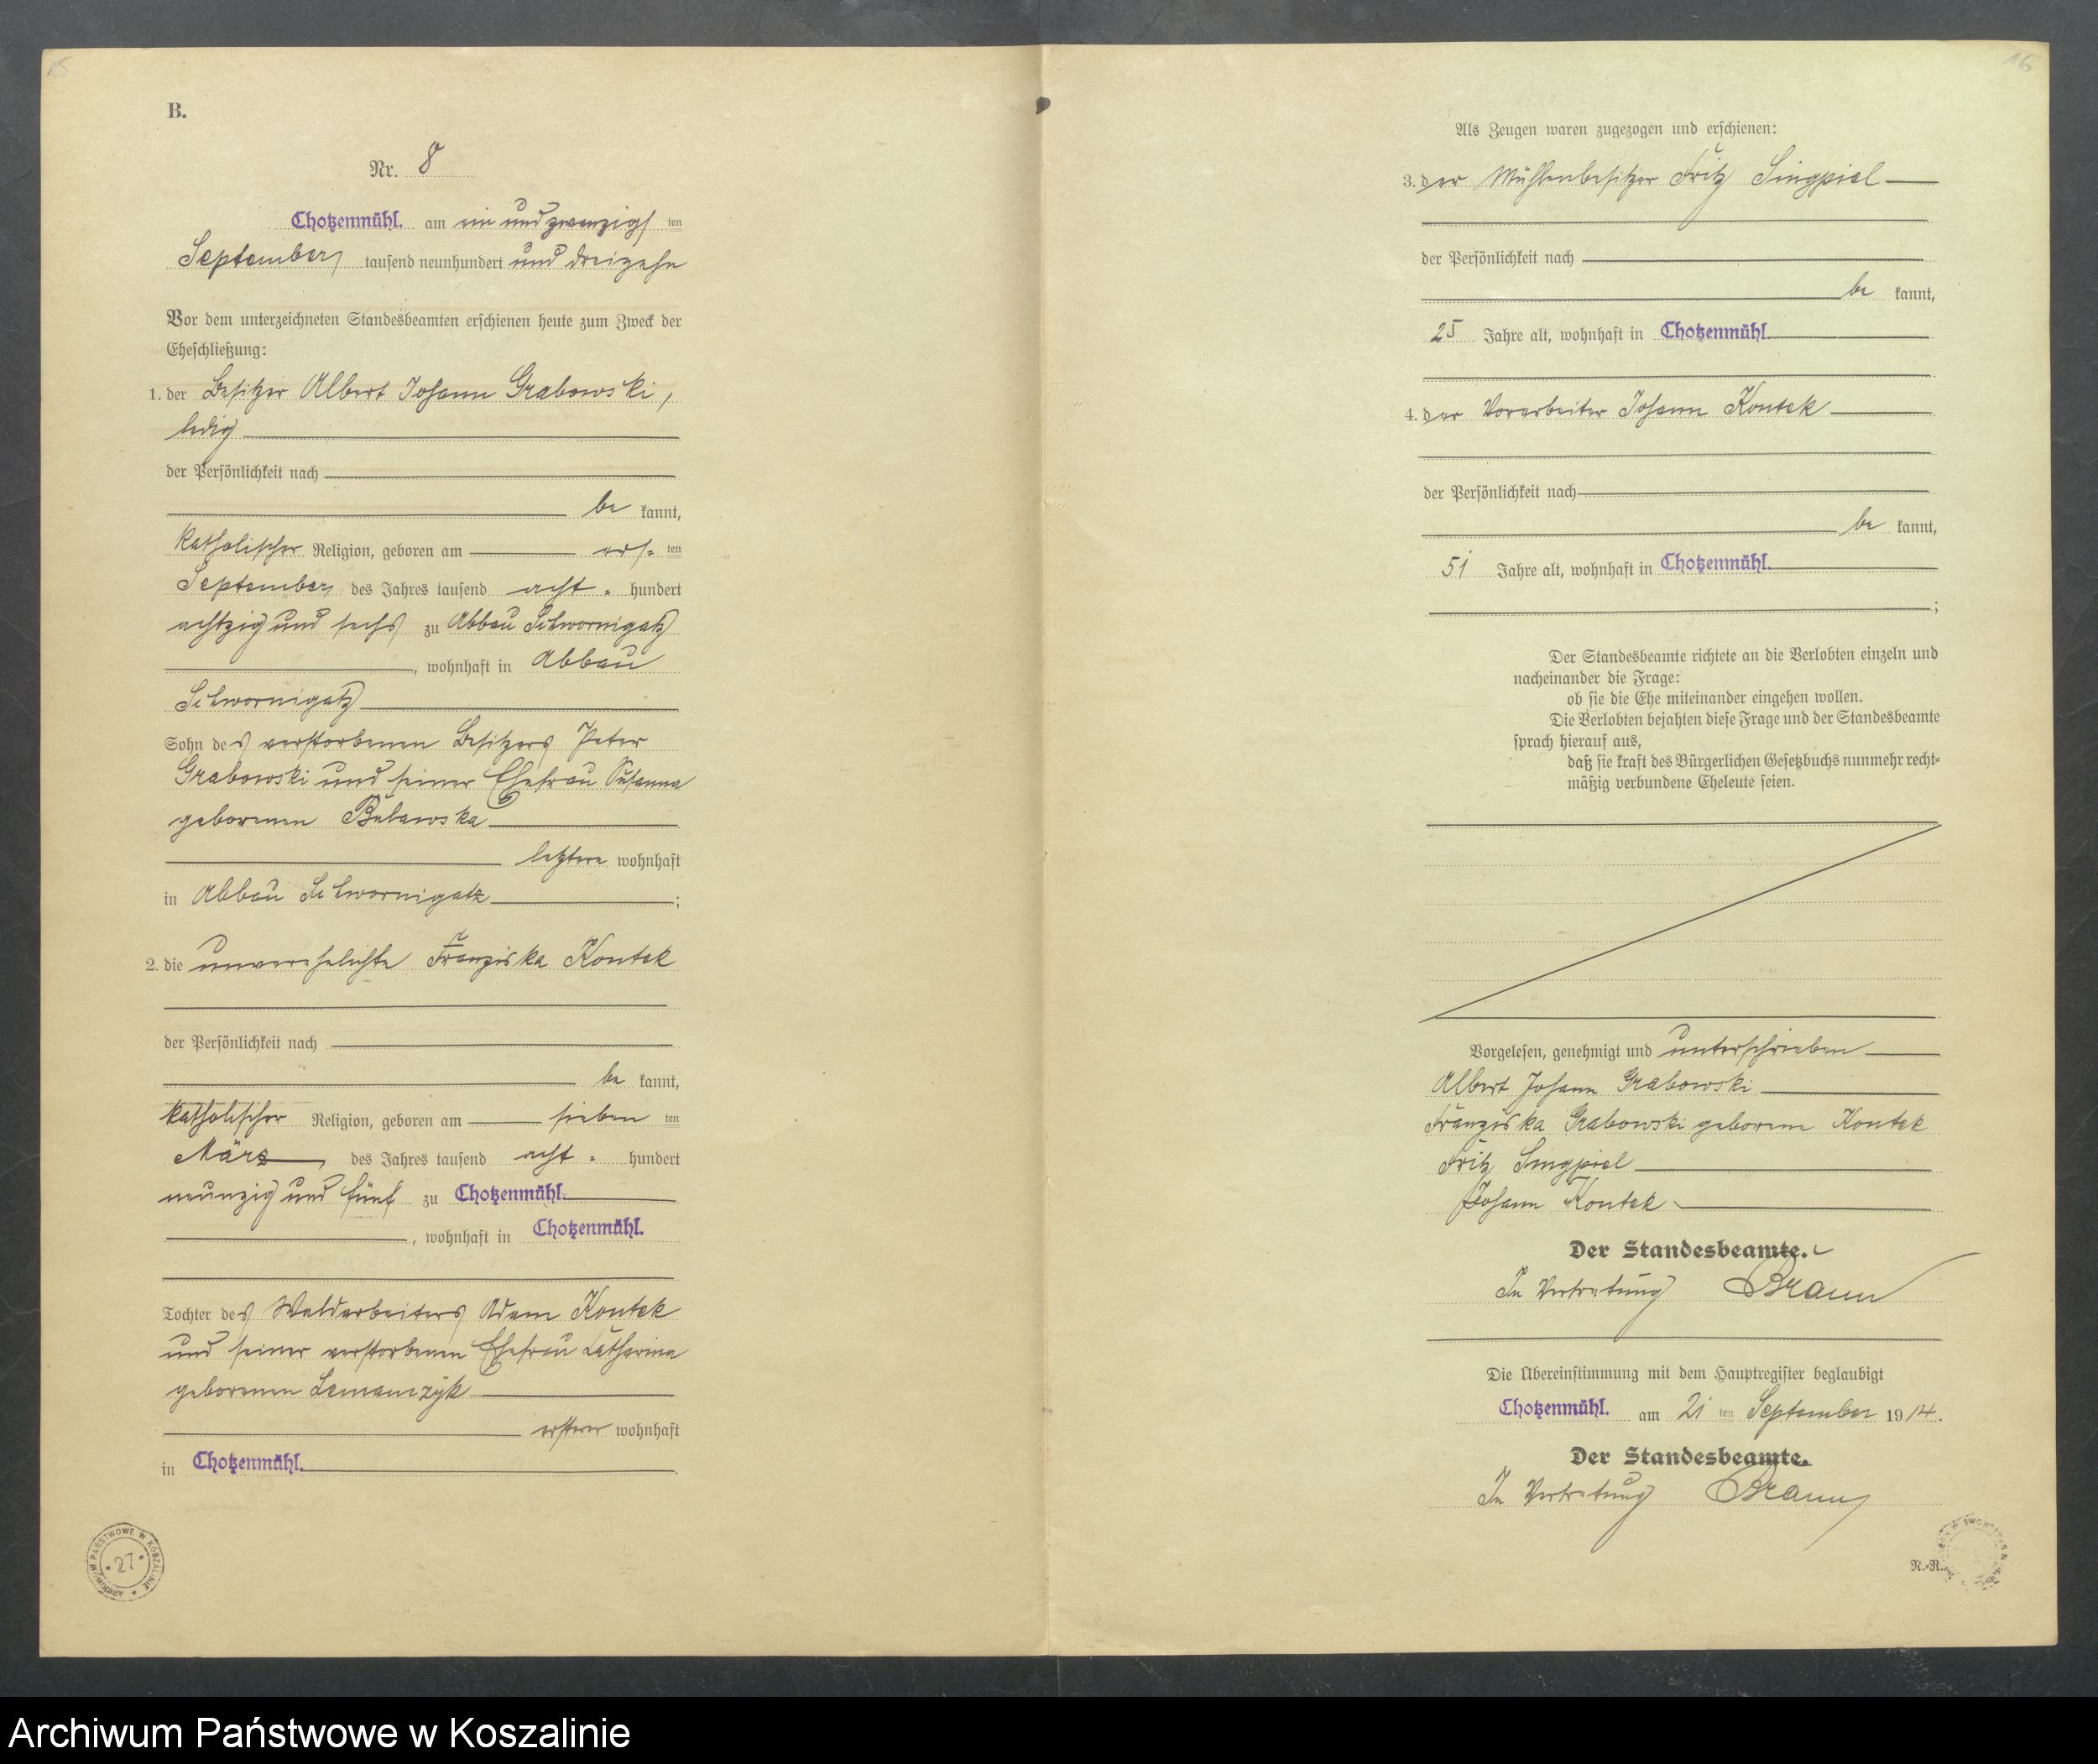 15
B.
Nr. 8
Chotzenmühl. am ein und zwanzigs ten
September tausend neunhundert und dreizehn
Vor dem unterzeichneten Standesbeamten erschienen heute zum Zweck der
Eheschließung:
1. der Besitzer Albert Johann Grabowski,
ledig
der Persönlichkeit nach
be kannt,
katholischer Religion, geboren am ers- ten
September des Jahres tausend acht - hundert
achtzig und sechs zu Abbau Schwornigatz
, wohnhaft in Abbau
Schwornigatz
Sohn des verstorbenen Besitzers Peter
Grabowski und seiner Ehefrau Susanna
geborenen Bulawska
letztere wohnhaft
in Abbau Schwornigatz ;
2. die unverehelichte Franziska Kontek
der Persönlichkeit nach
be kannt,
katholischer Religion, geboren am sieben ten
März des Jahres tausend acht - hundert
neunzig und fünf zu Chotzenmühl.
, wohnhaft in Chotzenmühl.
Tochter des Waldarbeiters Adam Kontek
und seiner verstorbenen Ehefrau Katharina
geborenen Lemanczyk
ersterer wohnhaft
in Chotzenmühl. .
ARCHIWUM PAŃSTWOWE W KOSZALINIE * 27 *
16
Als Zeugen waren zugezogen und erschienen:
3. der Mühlenbesitzer Fritz Singpiel
der Persönlichkeit nach
be kannt,
25 Jahre alt, wohnhaft in Chotzenmühl.
4. der Vorarbeiter Johann Kontek
der Persönlichkeit nach
be kannt,
51 Jahre alt, wohnhaft in Chotzenmühl.
;
Der Standesbeamte richtete an die Verlobten einzeln und
nacheinander die Frage:
ob sie die Ehe miteinander eingehen wollen.
Die Verlobten bejahten diese Frage und der Standesbeamte
sprach hierauf aus,
daß sie kraft des Bürgerlichen Gesetzbuchs nunmehr recht-
mäßig verbundene Eheleute seien.
Vorgelesen, genehmigt und unterschrieben
Albert Johann Grabowski
Franziska Grabowski geborene Kontek
Fritz Singpiel
Johann Kontek
Der Standesbeamte.
In Vertretung Braun
Die Übereinstimmung mit dem Hauptregister beglaubigt
Chotzenmühl. am 21 ten September 1914.
Der Standesbeamte.
In Vertretung Braun
N.-R.
Archiwum Państwowe w Koszalinie